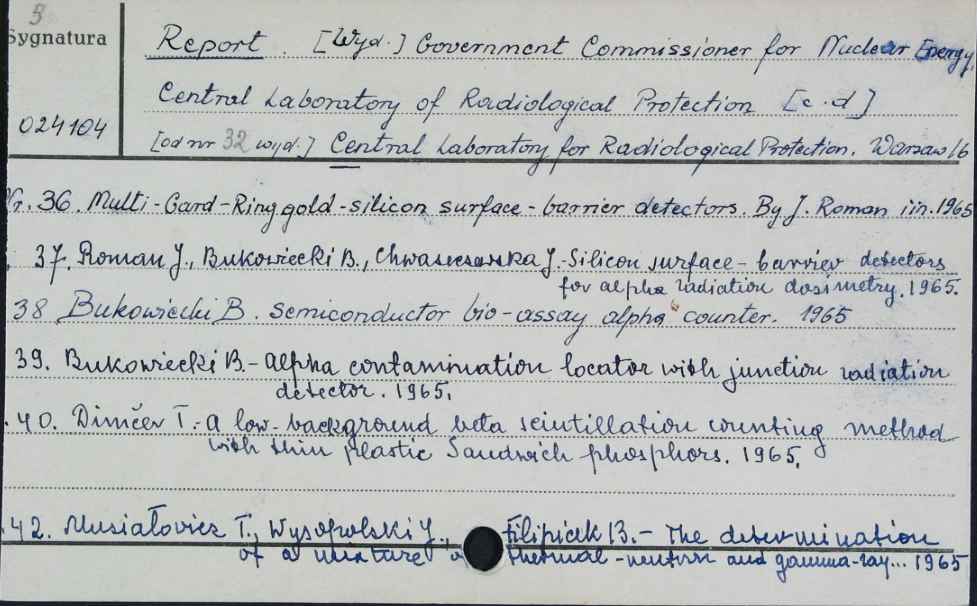 5
Sygnatura
024104
Report. [Wyd.] Government Commissioner for Nuclear Energy,
Central Laboratory of Radiological Protection [c.d]
[od nr 32 wyd.] Central Laboratory for Radiological Protection. Warsaw 16
Nr. 36. Multi-Gard-Ring gold-silicon surface-barrier detectors. By J. Roman i in. 1965
37. Roman J., Bukowiecki B., J.-Silicon surface-barrier detectors
for alpha radiation dosimetry. 1965.
38 Bukowiecki B. Semiconductor bio-assay alpha counter. 1965
39. Bukowiecki B.-Alpha contamination locator with junction radiation
detector. 1965.
.40. Dimčev T.-A low-background beta scintillation counting method
with thin plastic Sandwich phosphors. 1965.
.42. Musiałowicz T., Wysopolski J., Filipiak B.- The determination
of a mixture thermal-neutron and gamma-ray... 1965